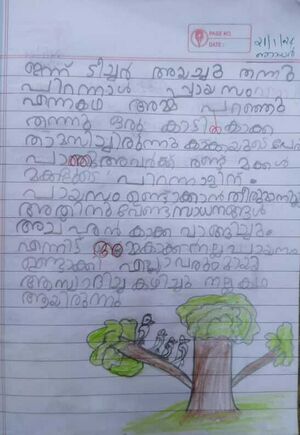 PAGE NO.
DATE:
21/1/26
ഞായർ
ഇന്ന് ടീച്ചർ അയച്ചു തന്നു
പിറന്നാൾ പ്പായസം
എന്നകഥ അമ്മ പറഞ്ഞു
തന്നു ഒരു കാടിൽ കാക്ക
താമസിച്ചിരുന്നു കാക്കയുടെ പേര്
അവർക്ക് രണ്ട് മക്കൾ
മക്കളുടെ പിറന്നാളിന്
പായസം ഉണ്ടാക്കാൻ തീരുമാനിച്ചു
അതിനു വേണ്ട സാധനങ്ങൾ
അച്ഛൻ കാക്ക വാങ്ങിച്ചു
എന്നിട്ട് അമ്മകാക്ക നല്ല പായസം
ഉണ്ടാക്കി എല്ലാവരും കൂടി
ആസ്വദിച്ചു കഴിച്ചു നല്ല കഥ
ആയിരുന്നു